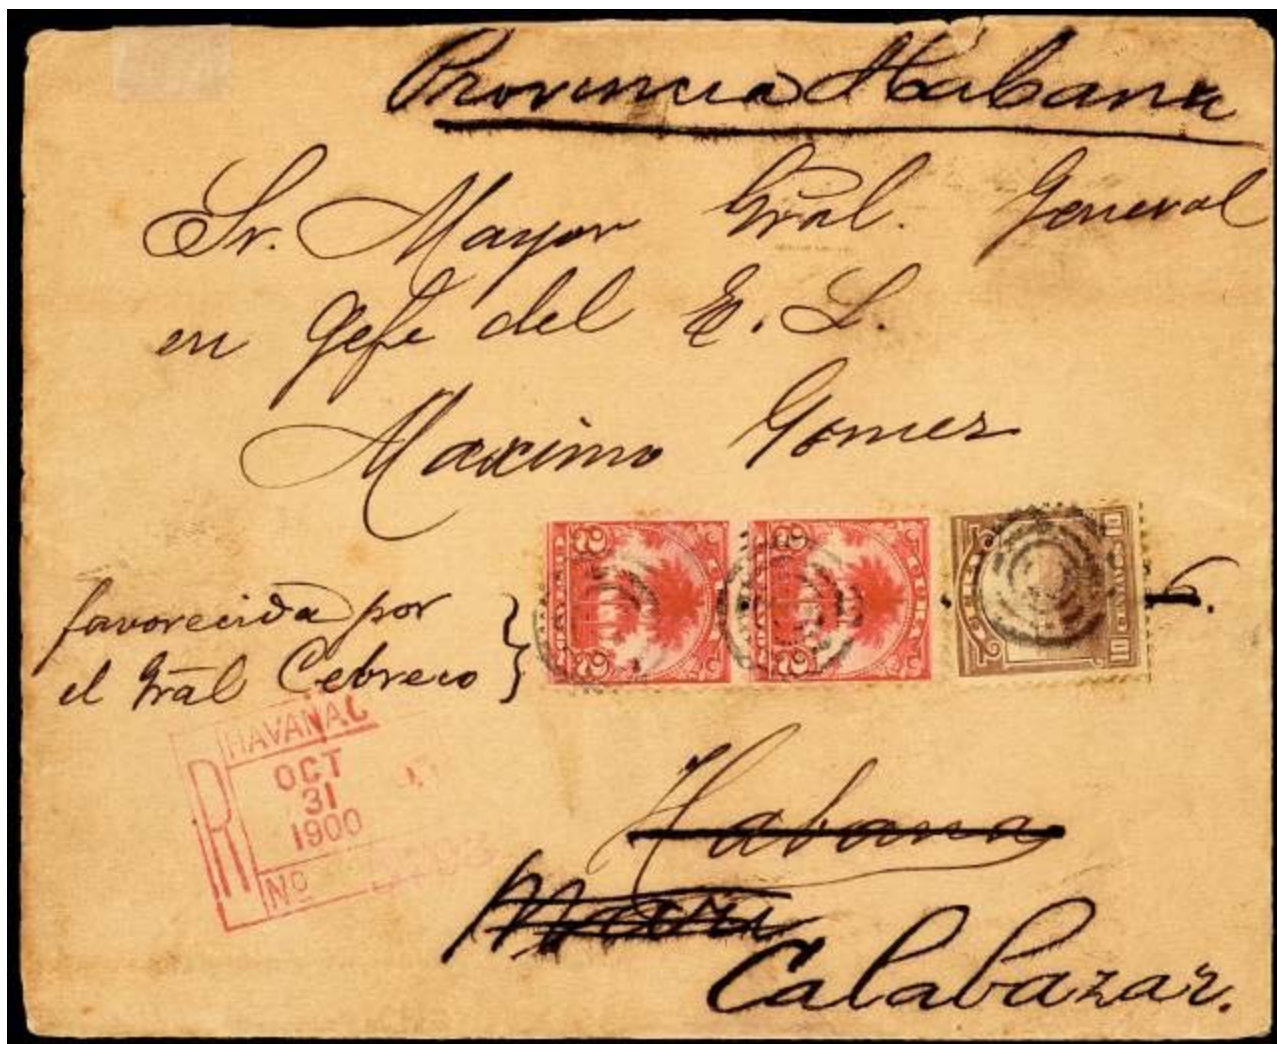 Provincia Habana
Sr. Mayor Grãl. General
en Gefe del E. L.
Maximo Gomez
favorecida por
el Grãl Cebreco
CUBA
2 2
CUBA
2 2
10 10
6.
HAVANA C
R
OCT
31
1900
Nº
Habana
Calabazar.